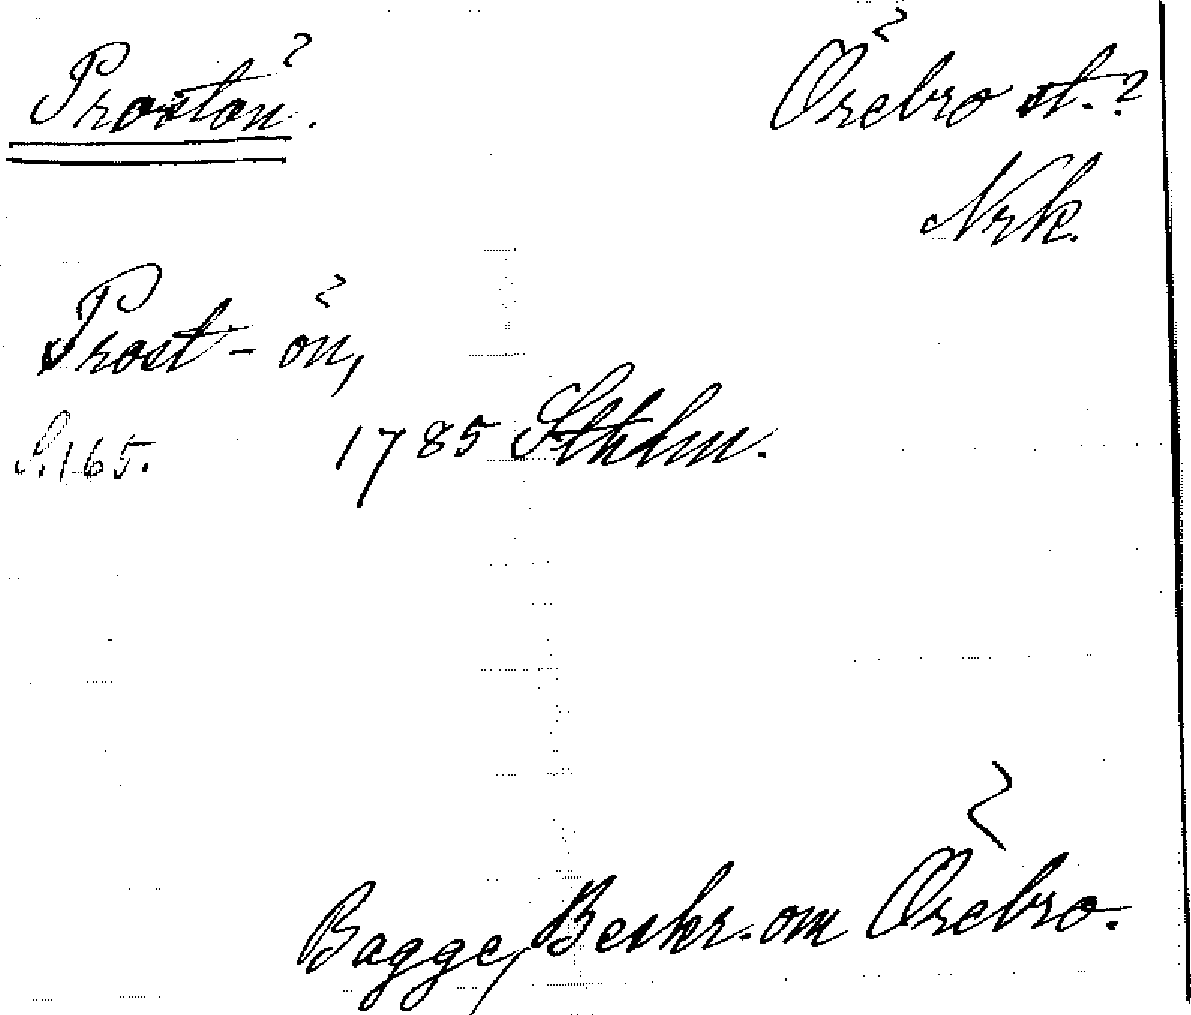 Prostön. Örebro st.?
Nrk.
Prost-ön,
S. 165. 1785 Sthlm.
Bagge, Beskr. om Örebro.